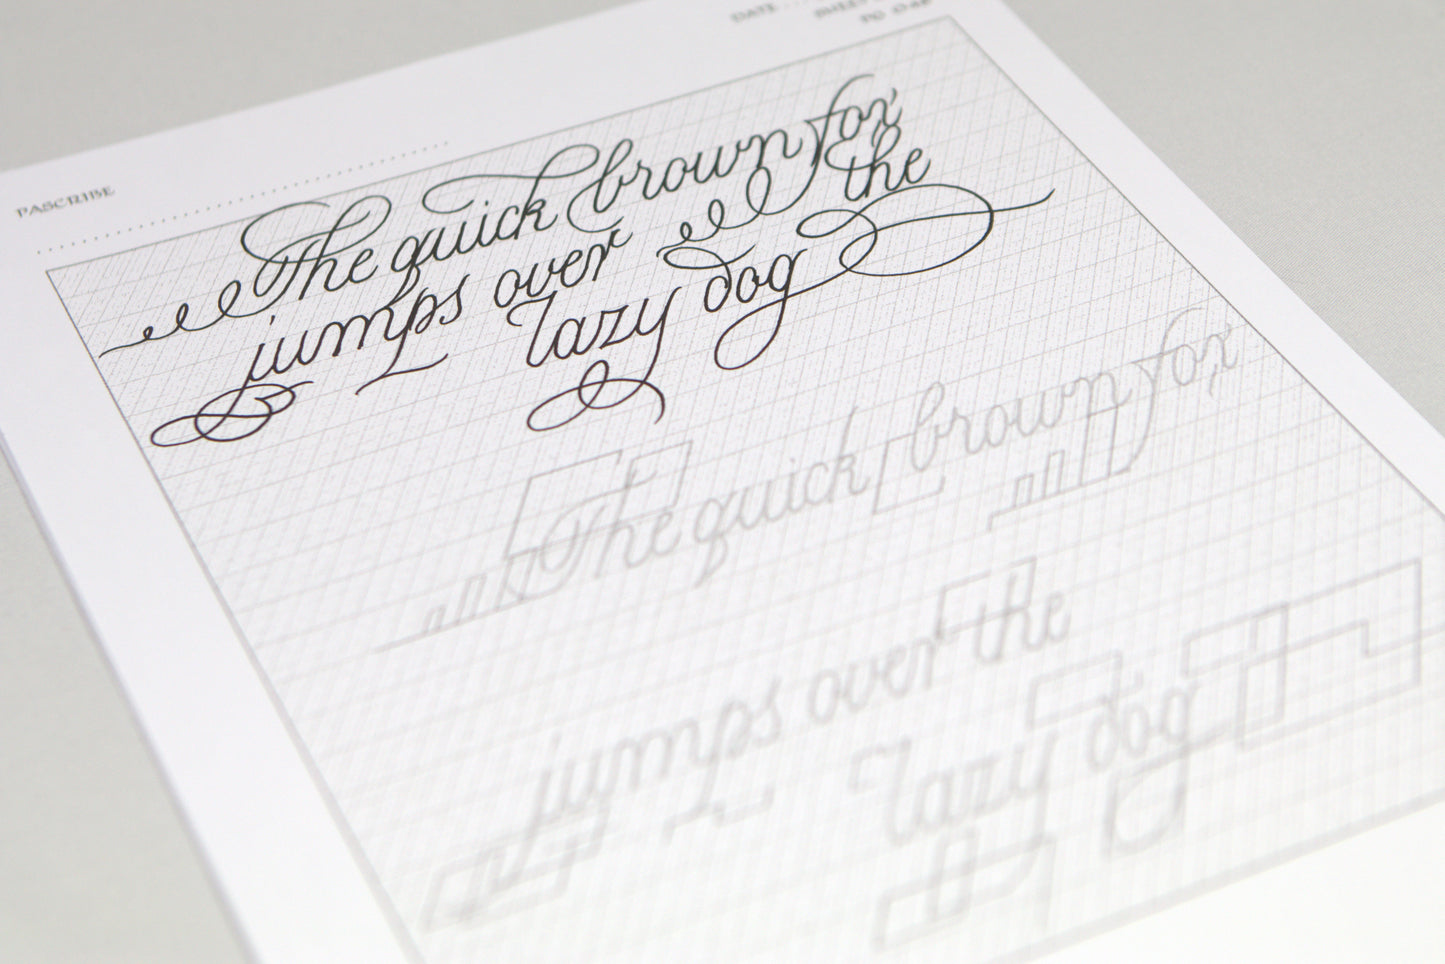 DATE
PASCRIBE
The quick brown fox
jumps over the
lazy dog
The quick brown fox
jumps over the
lazy dog